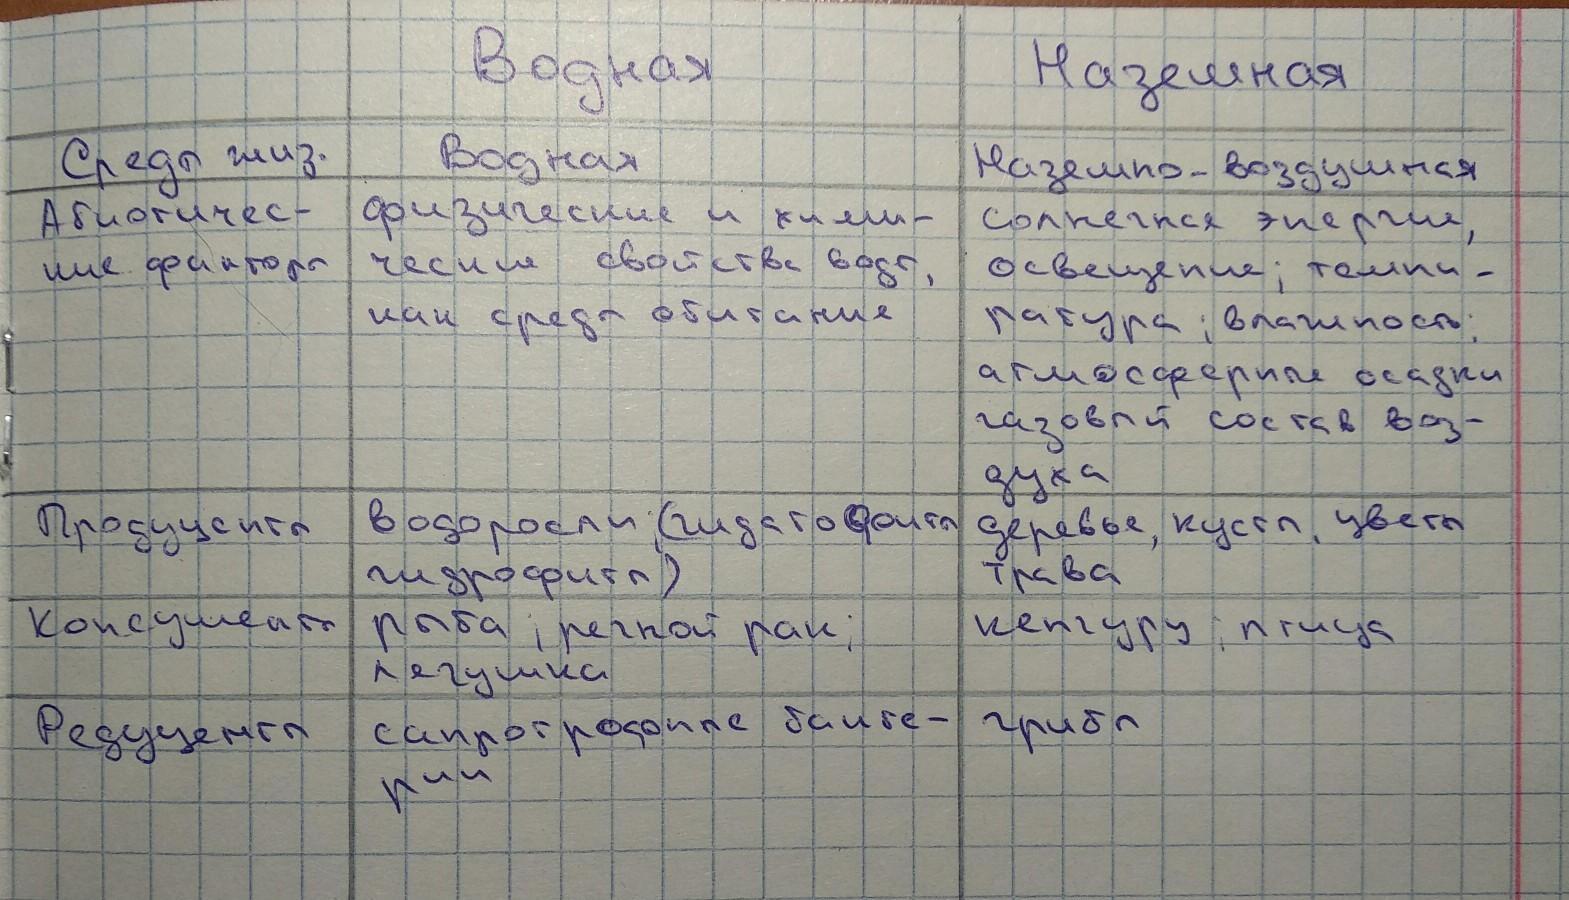 Водная
Наземная
Среды жиз.
Водная
Наземно-воздушная
Абиотичес-
кие факторы
физические и хими-
ческие свойства воды,
как среды обитание
солнечная энергие,
освещение; темпи-
ратура; влажность;
атмосферные осадки
газовый состав воз-
духа
Продуценты
водоросли (гидатофиты
гидрофиты)
деревье, кусты, цветы
трава
Консументы
рыба; речной рак;
лягушка
кенгуру; птица
Редуценты
сапротрофные бакте-
рии
грибы